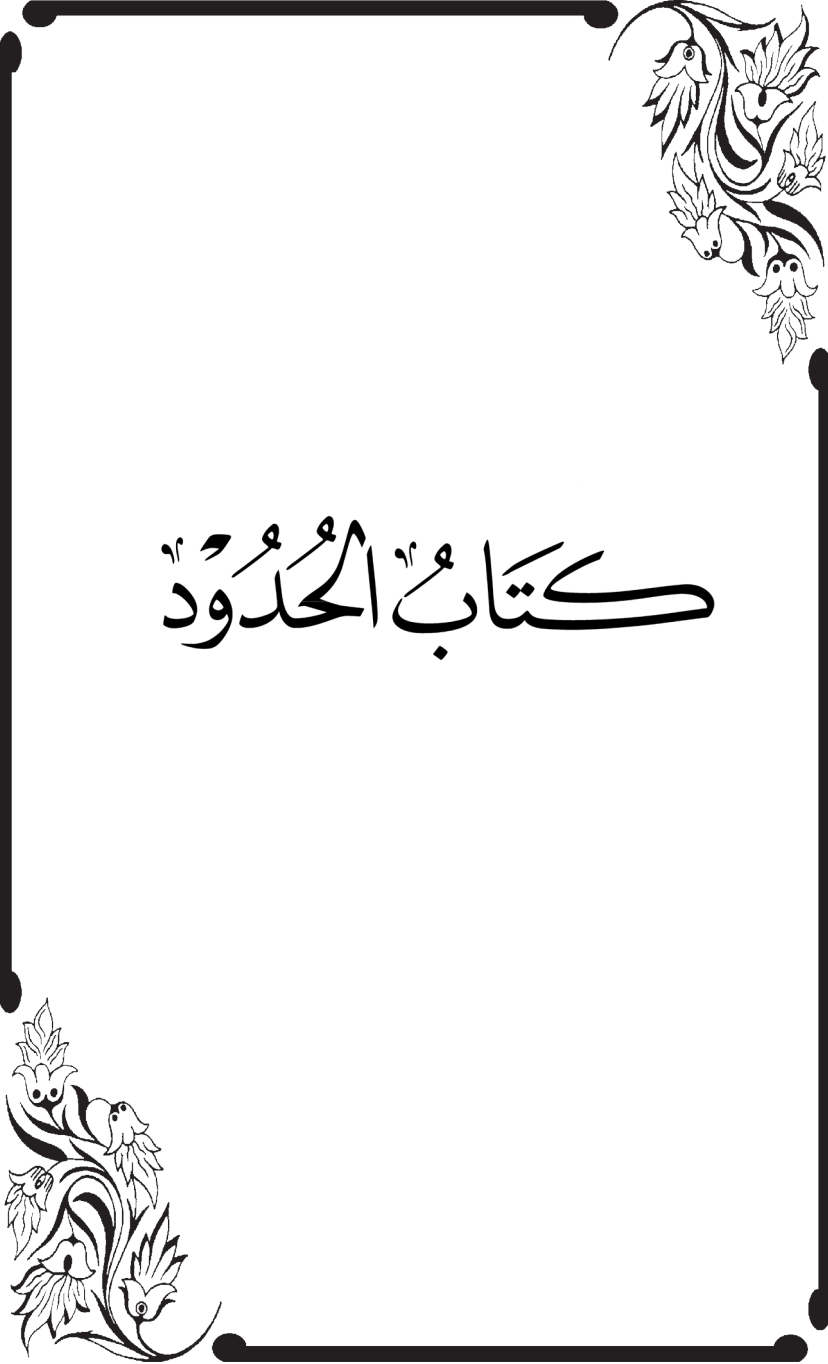 كتَابُ الحُدُوْد